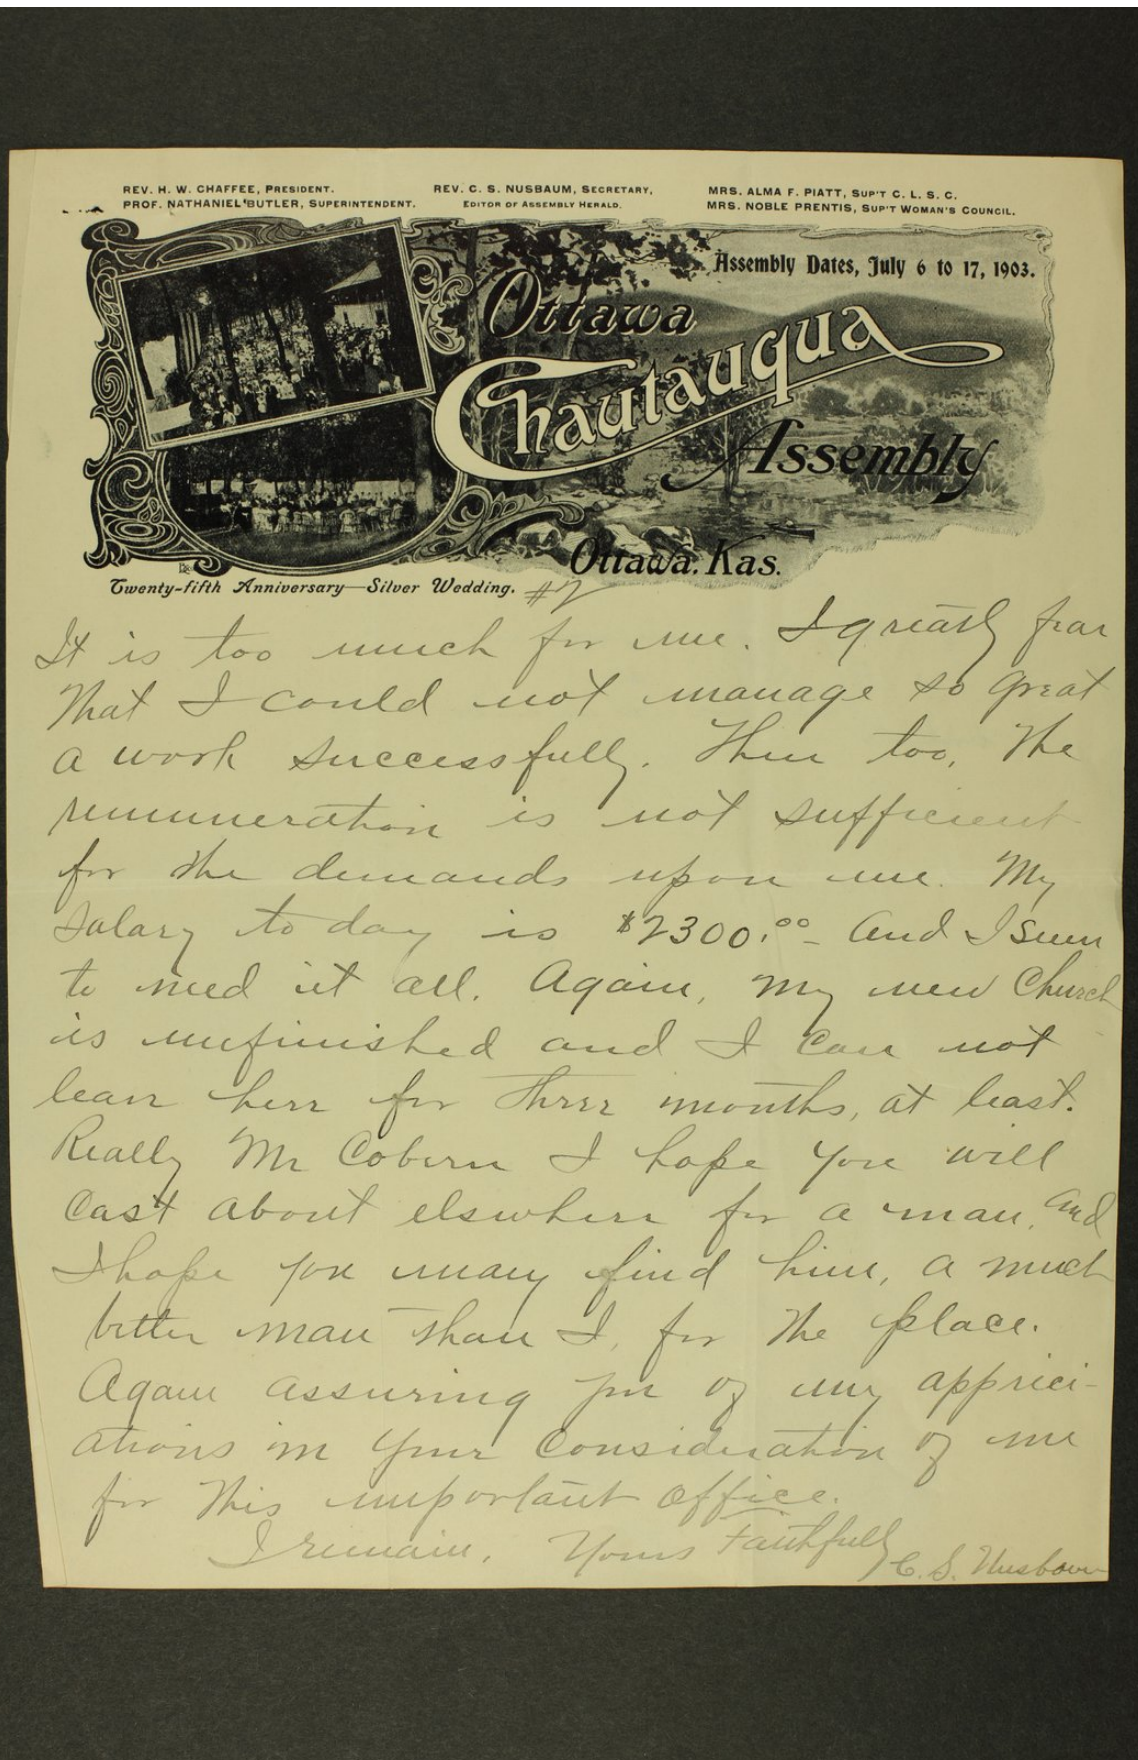 REV. H. W. CHAFFEE, PRESIDENT.
PROF. NATHANIEL BUTLER, SUPERINTENDENT.
REV. C. S. NUSBAUM, SECRETARY,
EDITOR OF ASSEMBLY HERALD.
MRS. ALMA F. PIATT, SUP'T C. L. S. C.
MRS. NOBLE PRENTIS, SUP'T WOMAN'S COUNCIL.
Assembly Dates, July 6 to 17, 1903.
Ottawa
Chautauqua
Assembly
Ottawa. Kas.
Twenty-fifth Anniversary—Silver Wedding.
#2
It is too much for me. I greatly fear
that I could not manage so great
a work successfully. Then too, the
remuneration is not sufficient
for the demands upon me. My
salary to day is $2300.00 – and I seem
to need it all. Again, my new Church
is unfinished and I can not
leave here for three months, at least.
Really Mr Coburn I hope you will
cast about elsewhere for a man, and
I hope you may find him, a much
better man than I, for the place.
Again assuring you of my appreci-
ations in your consideration of me
for this important office.
I remain, Yours Faithfully
C. S. Nusbaum